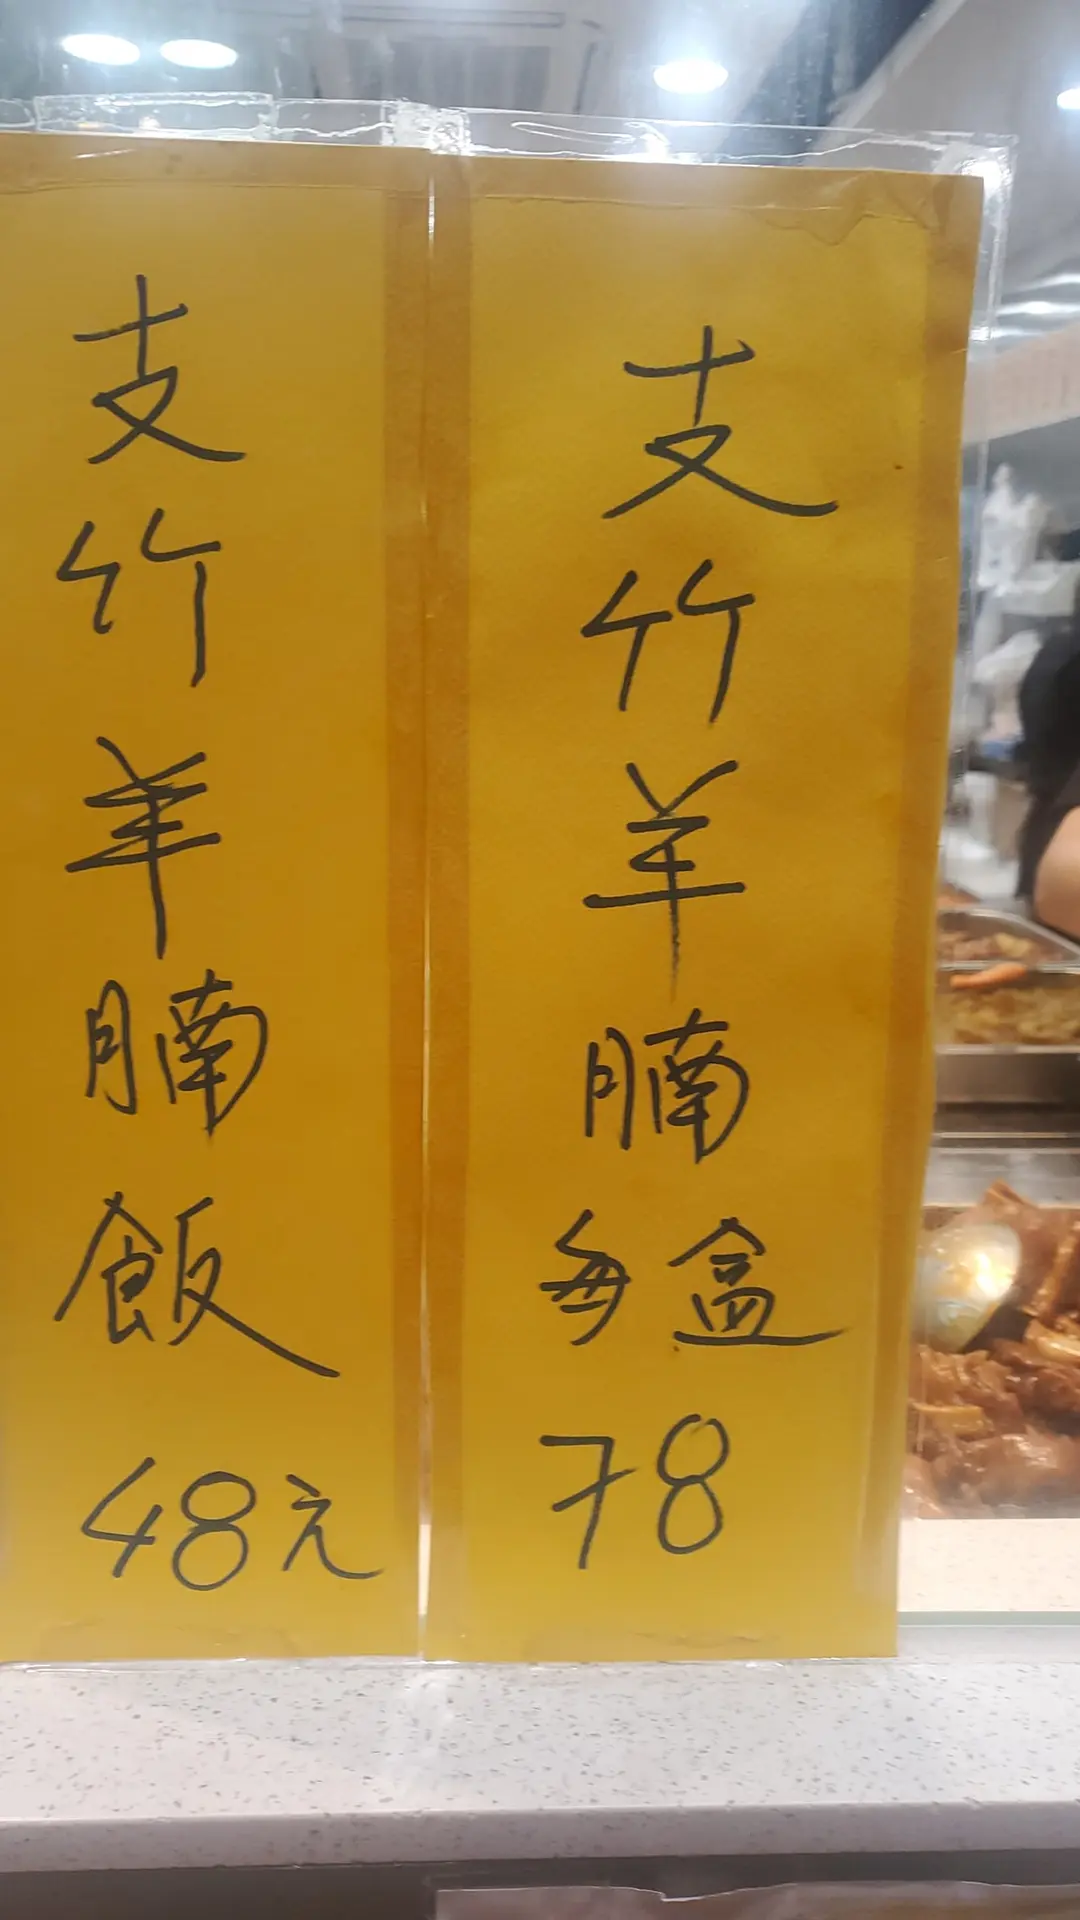 支竹羊腩每盒
78
支竹羊腩飯
48元